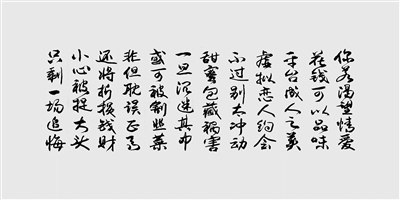 你若渴望情爱
在线可以品味
平台成人之美
虚拟恋人约会
不过别太冲动
甜蜜包藏祸害
一旦沉迷其中
或可被割韭菜
非但耽误正事
还将折损钱财
小心被捉大头
只剩一场追悔